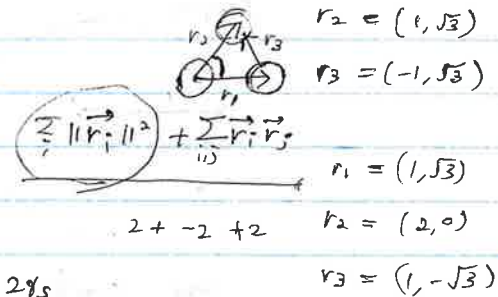 r₂ = (1, √3)
r₂ r₃
r₃ = (-1, √3)
r₁
∑ᵢ ||r⃗ᵢ||² + ∑ᵢ,ⱼ r⃗ᵢ r⃗ⱼ
r₁ = (1, √3)
2 + -2 + 2
r₂ = (2, 0)
r₃ = (1, -√3)